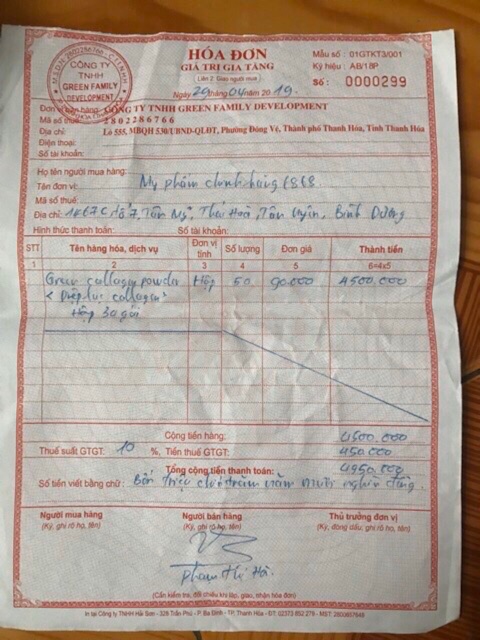 HÓA ĐƠN
GIÁ TRỊ GIA TĂNG
Liên 2: Giao người mua
Ngày 29 tháng 04 năm 2019
Mẫu số : 01GTKT3/001
Ký hiệu : AB/18P
Số : 0000299
M.S.D.N: 2802286766 - C.T.T.N.H.H
CÔNG TY
TNHH
GREEN FAMILY
DEVELOPMENT
Đơn vị bán hàng: CÔNG TY TNHH GREEN FAMILY DEVELOPMENT
Mã số thuế: 2802286766
Địa chỉ: Lô 555, MBQH 530/UBND-QLĐT, Phường Đông Vệ, Thành phố Thanh Hóa, Tỉnh Thanh Hóa
Điện thoại:
Số tài khoản:
Họ tên người mua hàng:
Tên đơn vị: Mỹ phẩm chính hãng 6868
Mã số thuế:
Địa chỉ: Tổ 7, Tân Mỹ, Thái Hoà, Tân Uyên, Bình Dương
Hình thức thanh toán: Số tài khoản:
STT Tên hàng hóa, dịch vụ Đơn vị tính Số lượng Đơn giá Thành tiền
1 2 3 4 5 6=4x5
Green collagen powder Hộp 50 90.000 4500.000
< Diệp lục collagen >
Hộp 30 gói
Cộng tiền hàng: 4500.000
Thuế suất GTGT: 10 %, Tiền thuế GTGT: 450.000
Tổng cộng tiền thanh toán: 4950.000
Số tiền viết bằng chữ: Bốn triệu chín trăm năm mươi nghìn đồng.
Người mua hàng Người bán hàng Thủ trưởng đơn vị
(Ký, ghi rõ họ, tên) (Ký, ghi rõ họ, tên) (Ký, đóng dấu, ghi rõ họ, tên)
Phạm Thị Hà
(Cần kiểm tra, đối chiếu khi lập, giao, nhận hóa đơn)
In tại Công ty TNHH Hải Sơn - 328 Trần Phú - P. Ba Đình - TP. Thanh Hóa - ĐT: 02373 852 279 - MST: 2800657648